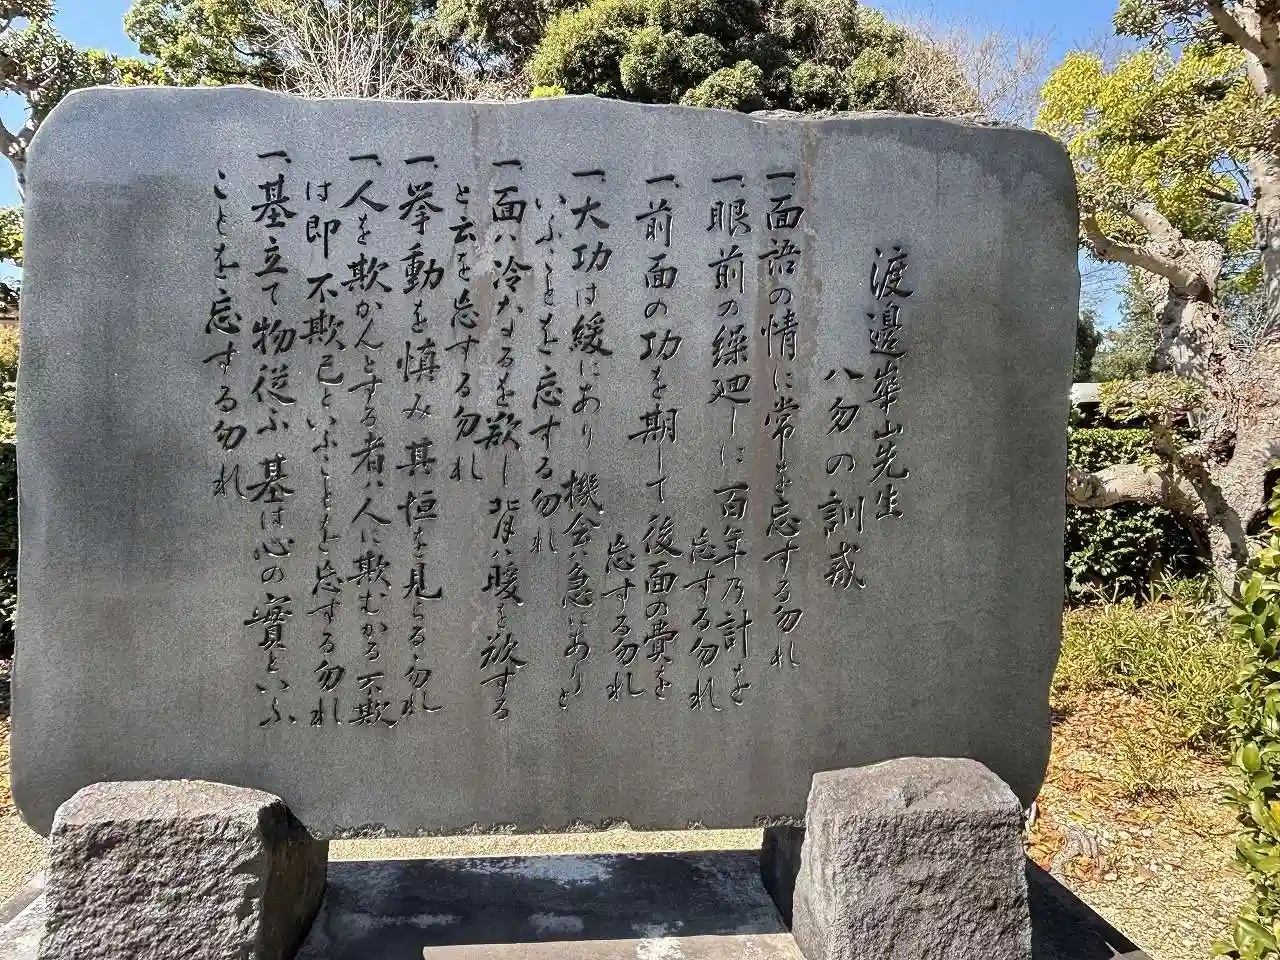 渡邉崋山先生
八勿の訓戒
一、面語の情に常を忘する勿れ
一、眼前の繰廻しに百年乃計を
忘する勿れ
一、前面の功を期して後面の費を
忘する勿れ
一、大功は緩にあり 機会ハ急にありと
いふことを忘する勿れ
一、面ハ冷なるを欲し背ハ暖を欲する
と云を忘する勿れ
一、挙動を慎み其恒を見らるゝ勿れ
一、人を欺かんとする者ハ人に欺むかる不欺
は即不欺己といふことを忘する勿れ
一、基立て物従ふ基は心の實といふ
ことを忘する勿れ